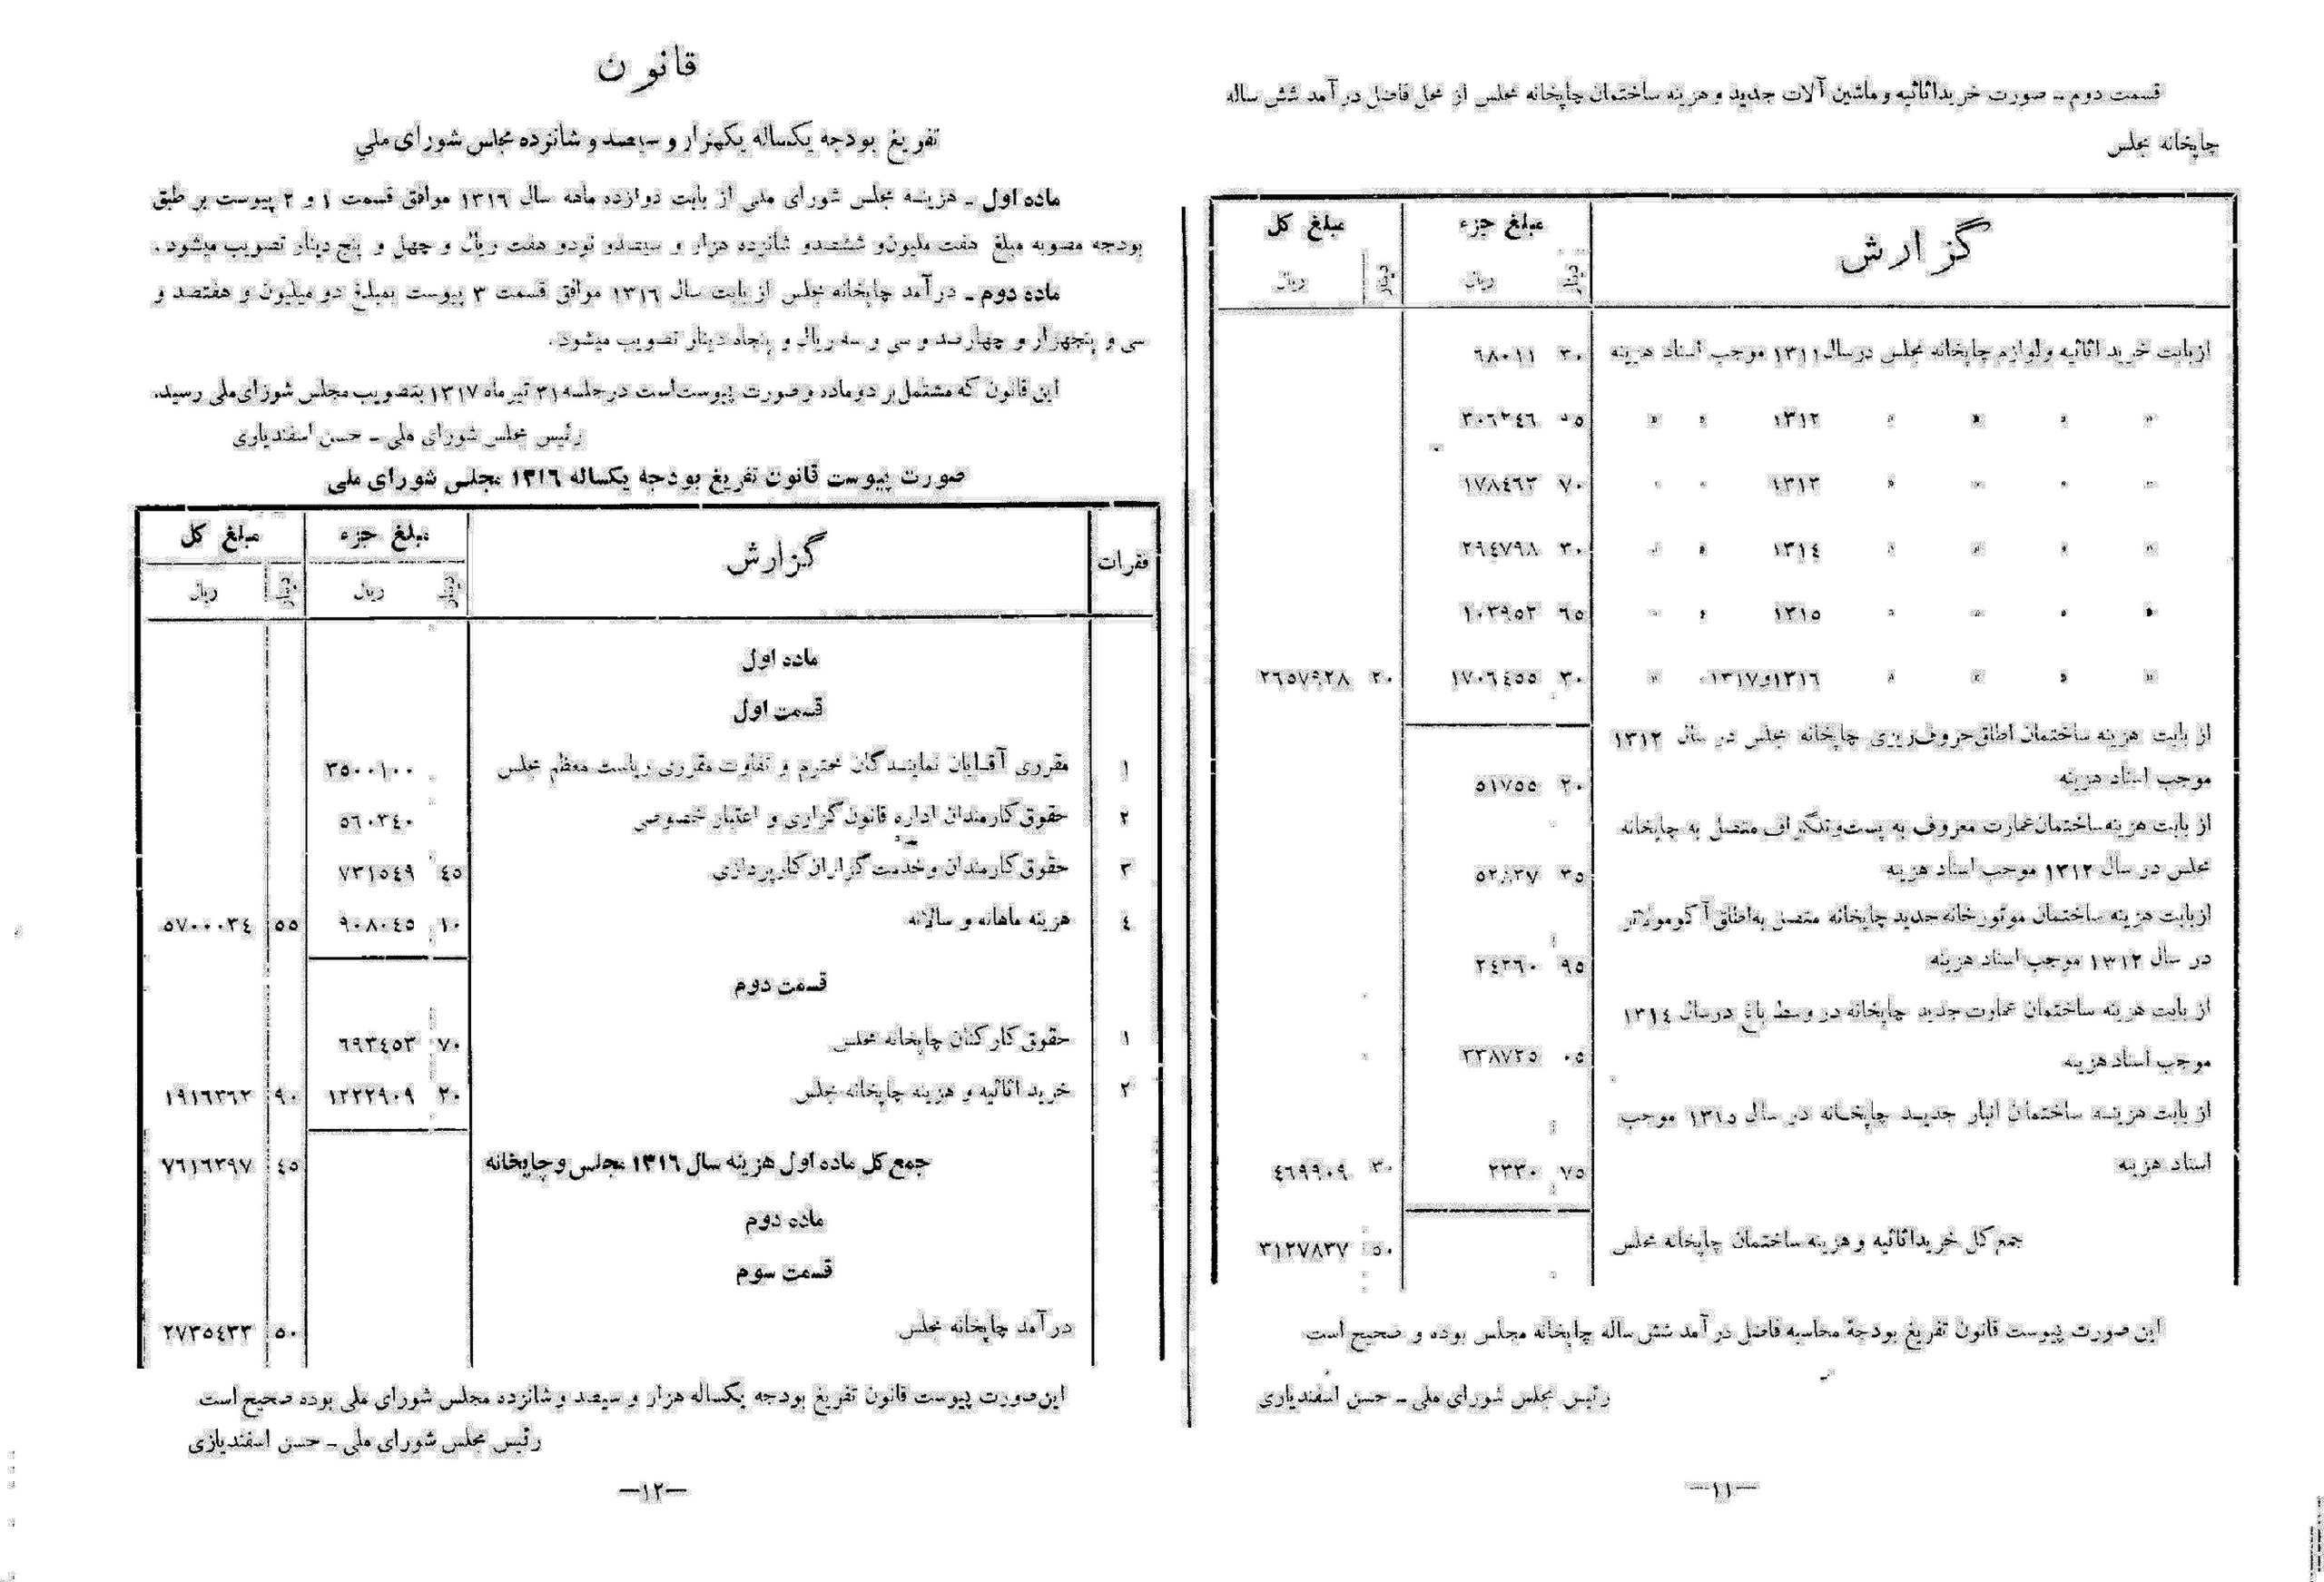 قسمت دوم ـ صورت خریداثاثیه و ماشین آلات جدید و هزینه ساختمان چاپخانه مجلس از محل فاضل درآمد شش ساله
چاپخانه مجلس
گزارش مبلغ جزء مبلغ کل
دینار ریال دینار ریال
ازبابت خرید اثاثیه ولوازم چاپخانه مجلس درسال ۱۳۱۱ موجب اسناد هزینه ۳۰ ٦۸۰۱۱
» » » » ۱۳۱۲ » » ۹٥ ۳۰٦۲٤٦
» » » » ۱۳۱۳ » » ۷۰ ۱۷۸٤٦۳
» » » » ۱۳۱٤ » » ۳۰ ۲۹٤۷۹۸
» » » » ۱۳۱٥ » » ٦٥ ۱۰۳۹٥۲
» » » » ۱۳۱٦و۱۳۱۷ » ۳۰ ۱۷۰٦٤٥٥ ۲۰ ۲٦٥۷۹۲۸
از بابت هزینه ساختمان اطاق حروف‌ریزی چاپخانه مجلس در سال ۱۳۱۲
موجب اسناد هزینه ۲۰ ٥۱۷٥٥
از بابت هزینه ساختمان عمارت معروف به پست‌وتلگراف متصل به چاپخانه
مجلس در سال ۱۳۱۲ موجب اسناد هزینه ۳٥ ٥۲۸۳۷
ازبابت هزینه ساختمان موتورخانه جدید چاپخانه متصل به اطاق آکومولاتر
در سال ۱۳۱۲ موجب اسناد هزینه ۹٥ ۲٤۲٦۰
از بابت هزینه ساختمان عمارت جدید چاپخانه در وسط باغ درسال ۱۳۱٤
موجب اسناد هزینه ۰٥ ۳۳۸۷۲٥
از بابت هزینه ساختمان انبار جدید چاپخانه در سال ۱۳۱٥ موجب
اسناد هزینه ۷٥ ۲۳۳۰ ۳۰ ٤٦۹۹۰۹
جمع کل خریداثاثیه و هزینه ساختمان چاپخانه مجلس ٥۰ ۳۱۲۷۸۳۷
این صورت پیوست قانون تفریغ بودجۀ محاسبه فاضل درآمد شش ساله چاپخانه مجلس بوده و صحیح است
رئیس مجلس شورای ملی ـ حسن اسفندیاری
—۱۱—
قانون
تفریغ بودجه یکساله یکهزار و سیصد و شانزده مجلس شورای ملی
ماده اول ـ هزینه مجلس شورای ملی از بابت دوازده ماهه سال ۱۳۱٦ موافق قسمت ۱ و ۲ پیوست بر طبق
بودجه مصوبه مبلغ هفت ملیون‌و ششصدو شانزده هزار و سیصدو نودو هفت ریال و چهل و پنج دینار تصویب میشود.
ماده دوم ـ درآمد چاپخانه مجلس از بابت سال ۱۳۱٦ موافق قسمت ۳ پیوست بمبلغ دو میلیون و هفتصد و
سی و پنجهزار و چهارصد و سی و سه ریال و پنجاه دینار تصویب میشود.
این قانون که مشتمل بر دو ماده و صورت پیوست است در جلسه ۳۱ تیر ماه ۱۳۱۷ بتصویب مجلس شورای‌ملی رسید.
رئیس مجلس شورای ملی ـ حسن اسفندیاری
صورت پیوست قانون تفریغ بودجه یکساله ۱۳۱٦ مجلس شورای ملی
فقرات گزارش مبلغ جزء مبلغ کل
دینار ریال دینار ریال
ماده اول
قسمت اول
۱ مقرری آقایان نمایندگان محترم و تفاوت مقرری ریاست معظم مجلس . ۳٥۰۰۱۰۰
۲ حقوق کارمندان اداره قانون‌گزاری و اعتبار خصوصی ٥٦۰۳٤۰
۳ حقوق کارمندان و خدمت گزاران کارپردازی ٤٥ ۷۳۱٥٤۹
٤ هزینه ماهانه و سالانه ۱۰ ۹۰۸۰٤٥ ٥٥ ٥۷۰۰۰۳٤
قسمت دوم
۱ حقوق کارکنان چاپخانه مجلس ۷۰ ٦۹۳٤٥۳
۲ خرید اثاثیه و هزینه چاپخانه مجلس ۲۰ ۱۲۲۲۹۰۹ ۹۰ ۱۹۱٦۳٦۲
جمع کل ماده اول هزینه سال ۱۳۱٦ مجلس و چاپخانه ٤٥ ۷٦۱٦۳۹۷
ماده دوم
قسمت سوم
درآمد چاپخانه مجلس ٥۰ ۲۷۳٥٤۳۳
این صورت پیوست قانون تفریغ بودجه یکساله هزار و سیصد و شانزده مجلس شورای ملی بوده صحیح است
رئیس مجلس شورای ملی ـ حسن اسفندیاری
—۱۲—